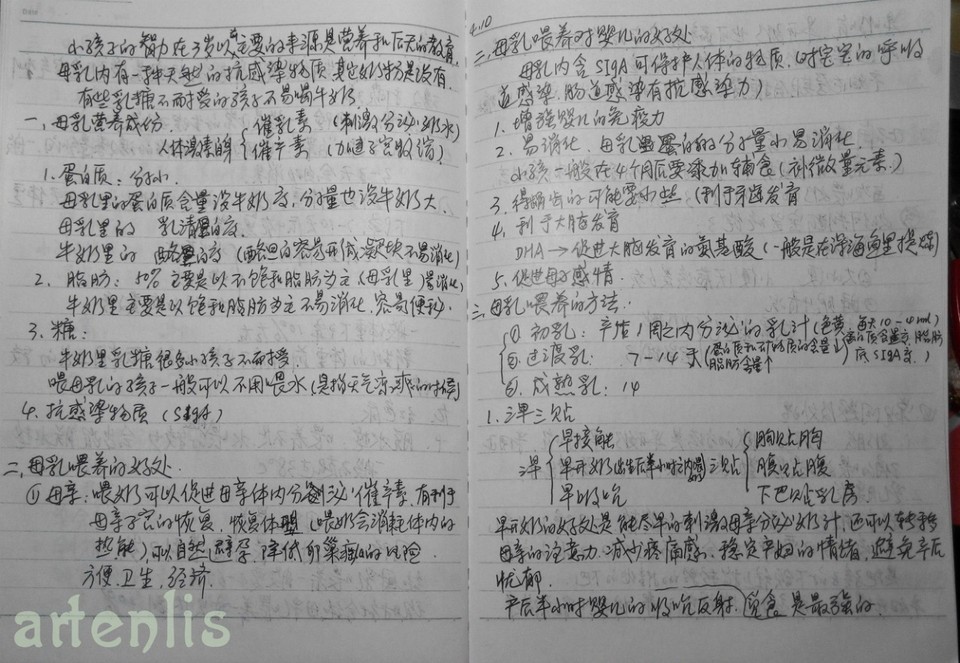 小孩子的智力在3岁以前主要的来源是营养和后天的教育.
母乳内有一种天然的抗感染物质.其它奶粉是没有.
有些乳糖不耐受的孩子不易喝牛奶
一,母乳营养成份 催乳素 (刺激分泌奶水)
人体激素的 催产素 (加速子宫收缩)
1.蛋白质:分子小.
母乳里的蛋白质含量没牛奶高,分子量也没牛奶大.
母乳里的 乳清蛋白高.
牛奶里的 酪蛋白高 (酪蛋白容易形成凝块不易消化)
2.脂肪:50% 主要是以不饱和脂肪为主(母乳里易消化)
牛奶里主要是以饱和脂肪为主不易消化,容易便秘.
3.糖:
牛奶里乳糖很多小孩子不耐受.
喂母乳的孩子一般可以不用喂水(是指天气凉爽的时候)
4.抗感染物质 (SIgA)
二.母乳喂养的好处.
① 母亲:喂奶可以促进母亲体内分泌催产素,有利于
母亲子宫的恢复,恢复体型 (喂奶会消耗体内的
热能)可以自然避孕,降低卵巢癌的
方便.卫生,经济.
artenlis
4.10
二.母乳喂养对婴儿的好处
母乳内含SIgA可保护人体的物质.(对宝宝的呼吸
道感染.肠道感染有抗感染力)
1.增强婴儿的免疫力
2.易消化,母乳蛋白的分子量小易消化.
小孩一般在4个月后要添加辅食(补微量元素.)
3.得龋齿的可能要小些.(利于牙齿发育
4,利于大脑发育
DHA→促进大脑发育的氨基酸(一般是在深海鱼里提炼)
5.促进母子感情.
三母乳喂养的方法.
① 初乳:产后1周之内分泌的乳汁(色黄,每天10-40ml)
蛋白质含量高,脂肪
② 过渡乳: 7-14天(蛋白质和矿物质的含量
脂肪含量 底SIgA高.)
③.成熟乳:14
1.三早三贴
早接触 胸贴胸
三早 早开奶(出生后半小时之内) 三贴 腹贴腹
早吸吮 下巴贴乳房
早开奶的好处是能尽早的刺激母亲分泌奶汁,还可以转移
母亲的注意力.减少疼痛感.稳定产妇的情绪,避免产后
忧郁.
产后半小时婴儿的吸吮反射.觅食是最强的.